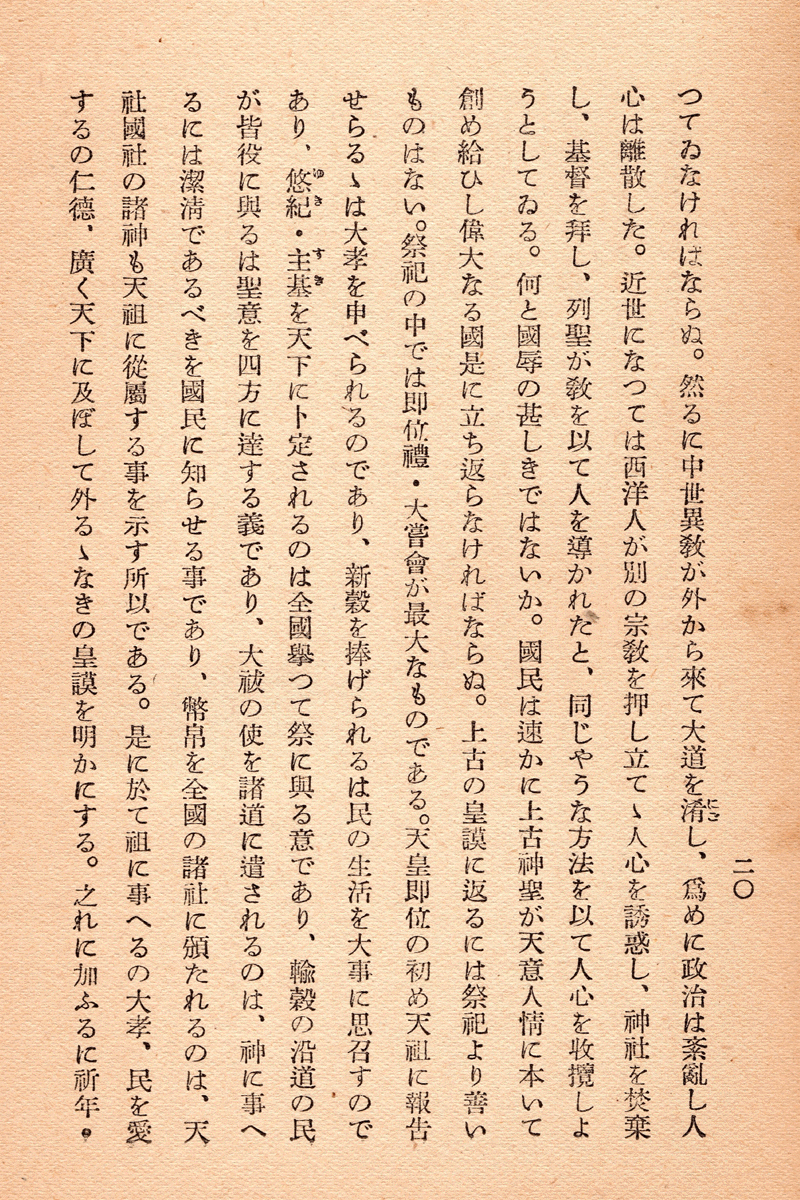 二〇
つてゐなければならぬ。然るに中世異敎が外から來て大道を淆し、爲めに政治は紊亂し人
にご
心は離散した。近世になつては西洋人が別の宗敎を押し立てゝ人心を誘惑し、神社を焚棄
し、基督を拜し、列聖が敎を以て人を導かれたと、同じやうな方法を以て人心を收攬しよ
うとしてゐる。何と國辱の甚しきではないか。國民は速かに上古神聖が天意人情に本いて
創め給ひし偉大なる國是に立ち返らなければならぬ。上古の皇謨に返るには祭祀より善い
ものはない。祭祀の中では即位禮・大嘗會が最大なものである。天皇即位の初め天祖に報告
せらるゝは大孝を申べられるのであり、新穀を捧げられるは民の生活を大事に思召すので
あり、悠紀・主基を天下に卜定されるのは全國擧つて祭に與る意であり、輸穀の沿道の民
ゆき
すき
が皆役に與るは聖意を四方に達する義であり、大祓の使を諸道に遣されるのは、神に事へ
るには潔淸であるべきを國民に知らせる事であり、幣帛を全國の諸社に頒たれるのは、天
社國社の諸神も天祖に從屬する事を示す所以である。是に於て祖に事へるの大孝、民を愛
するの仁德、廣く天下に及ぼして外るゝなきの皇謨を明かにする。之れに加ふるに祈年・